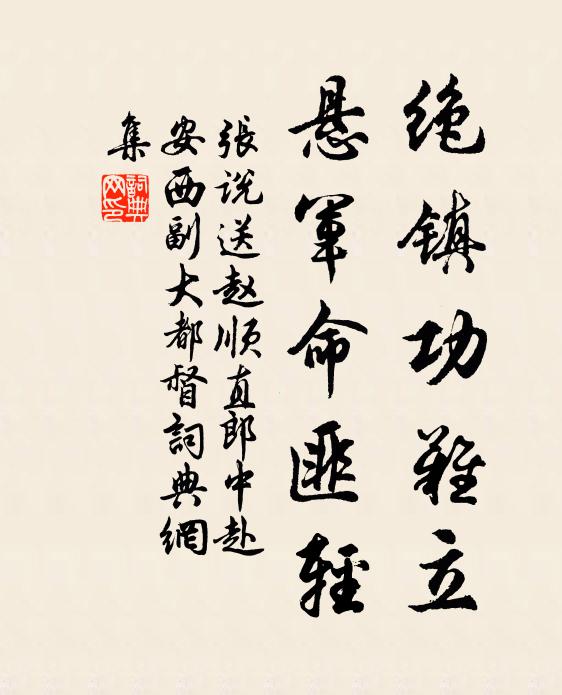 绝镇功难立
悬军命匪轻
张说送赵顺直郎中赴
安西副大都督詞典網
集
詞典
网印